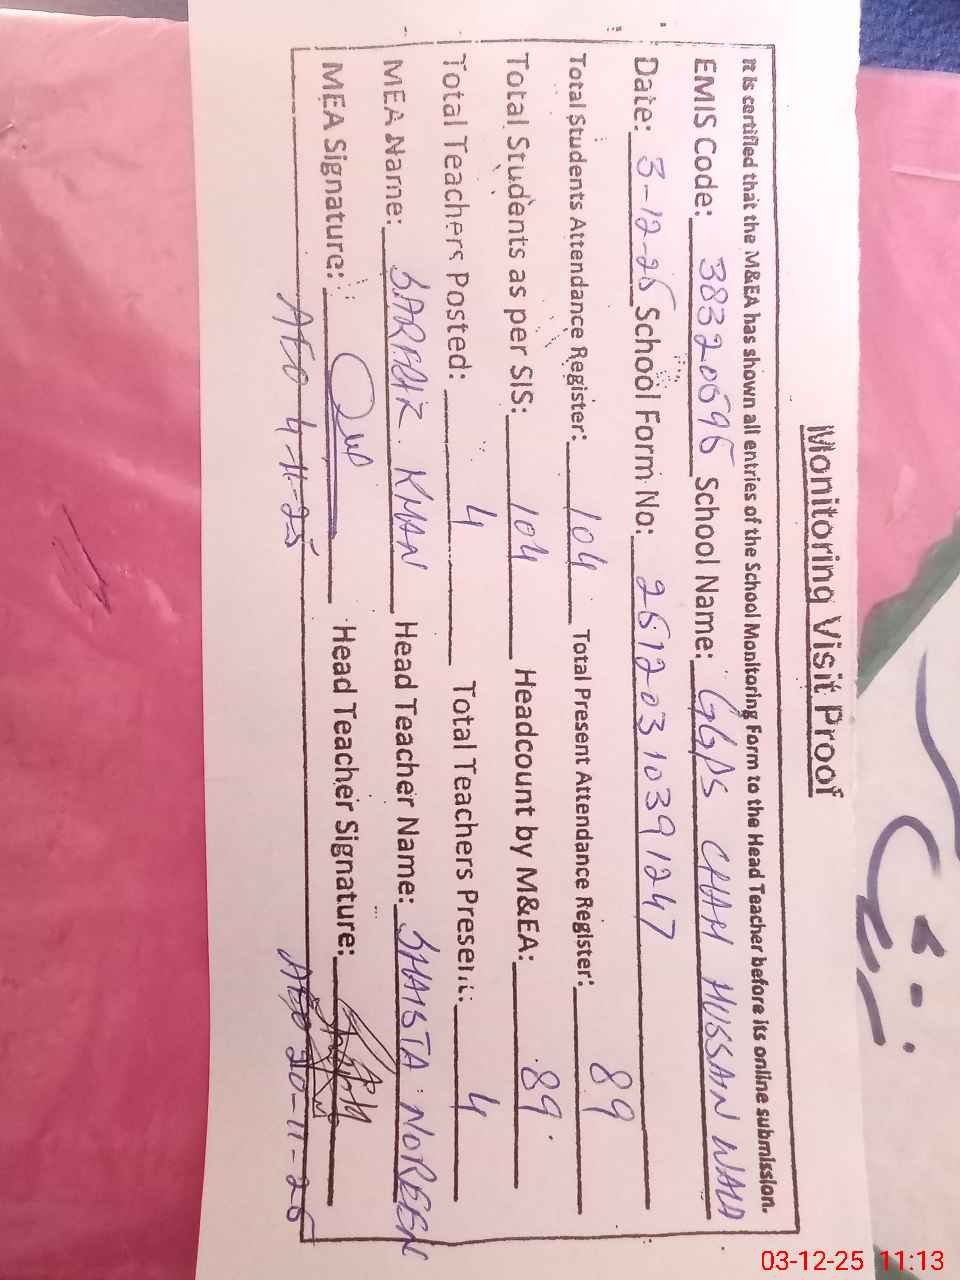 Monitoring Visit Proof
It is certified that the M&EA has shown all entries of the School Monitoring Form to the Head Teacher before its online submission.
EMIS Code: 38320696 School Name: GGPS CHAH HUSSAN WALA
Date: 3-12-25 School Form No: 251203 1039 1247
Total Students Attendance Register: 104 Total Present Attendance Register: 89
Total Students as per SIS: 104 Headcount by M&EA: 89
Total Teachers Posted: 4 Total Teachers Present: 4
MEA Name: KHAN Head Teacher Name: SHAISTA NOREEN
MEA Signature: Head Teacher Signature:
AEO 4-11-25 AEO 20-11-25
03-12-25 11:13